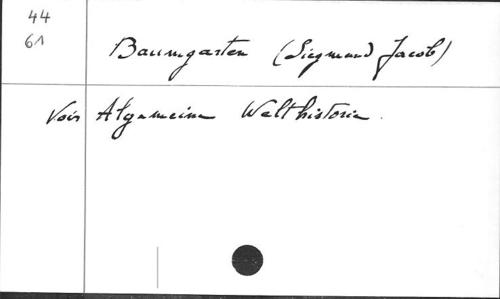 44
61
Baumgarten (Siegmund Jacob)
Voir Algemeine Welthistorie.